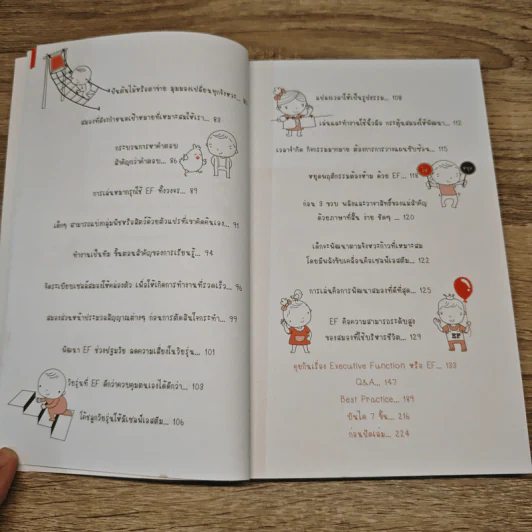 ปีนต้นไม้หรือตาข่าย มุมมองเปลี่ยนทุกจังหวะ...
สมองที่ดีลงกำหนดเป้าหมายที่เหมาะสมให้เรา... 83
กระบวนการหาคำตอบ
สำคัญกว่าคำตอบ... 86
การเล่นหมากรุกใช้ EF ทั้งวงจร... 89
เด็กๆ สามารถแบ่งกลุ่มพืชหรือสัตว์ด้วยตัวแปรที่เขาคิดค้นเอง... 91
ทำงานเป็นทีม ขั้นตอนสำคัญของการเรียนรู้... 94
จัดระเบียบเซลล์สมองให้คล่องตัว เพื่อให้เกิดการทำงานที่รวดเร็ว... 96
สมองส่วนหน้าประมวลสัญญาณต่างๆ ก่อนการตัดสินใจกระทำ... 99
พัฒนา EF ช่วงปฐมวัย ลดความเสี่ยงในวัยรุ่น... 101
วัยรุ่นที่ EF ดีกว่าควบคุมตนเองได้ดีกว่า... 103
โค้ชลูกวัยรุ่นให้มีเซลฟ์เอสตีม... 106
แปลงเวลาให้เป็นรูปธรรม... 110
เล่นและทำงานใช้นิ้วมือ กระตุ้นสมองให้พัฒนา... 112
เวลาจำกัด กิจกรรมมากมาย ต้องการการวางแผนซับซ้อน... 115
หยุดพฤติกรรมต้องห้าม ด้วย EF... 118
ก่อน 3 ขวบ พลังและวาจาสิทธิ์ของแม่สำคัญ
ด้วยภาษาที่สั้น ง่าย ชัดๆ ... 120
เด็กจะพัฒนาตามจังหวะก้าวที่เหมาะสม
โดยมีพลังขับเคลื่อนคือเซลฟ์เอสตีม... 122
การเล่นคือการพัฒนาสมองที่ดีที่สุด... 125
EF คือความสามารถระดับสูง
ของสมองที่ใช้บริหารชีวิต... 129
EF
คุยกันเรื่อง Executive Function หรือ EF... 133
Q&A... 147
Best Practice... 189
บันได 7 ขั้น... 216
ก่อนปิดเล่ม... 224